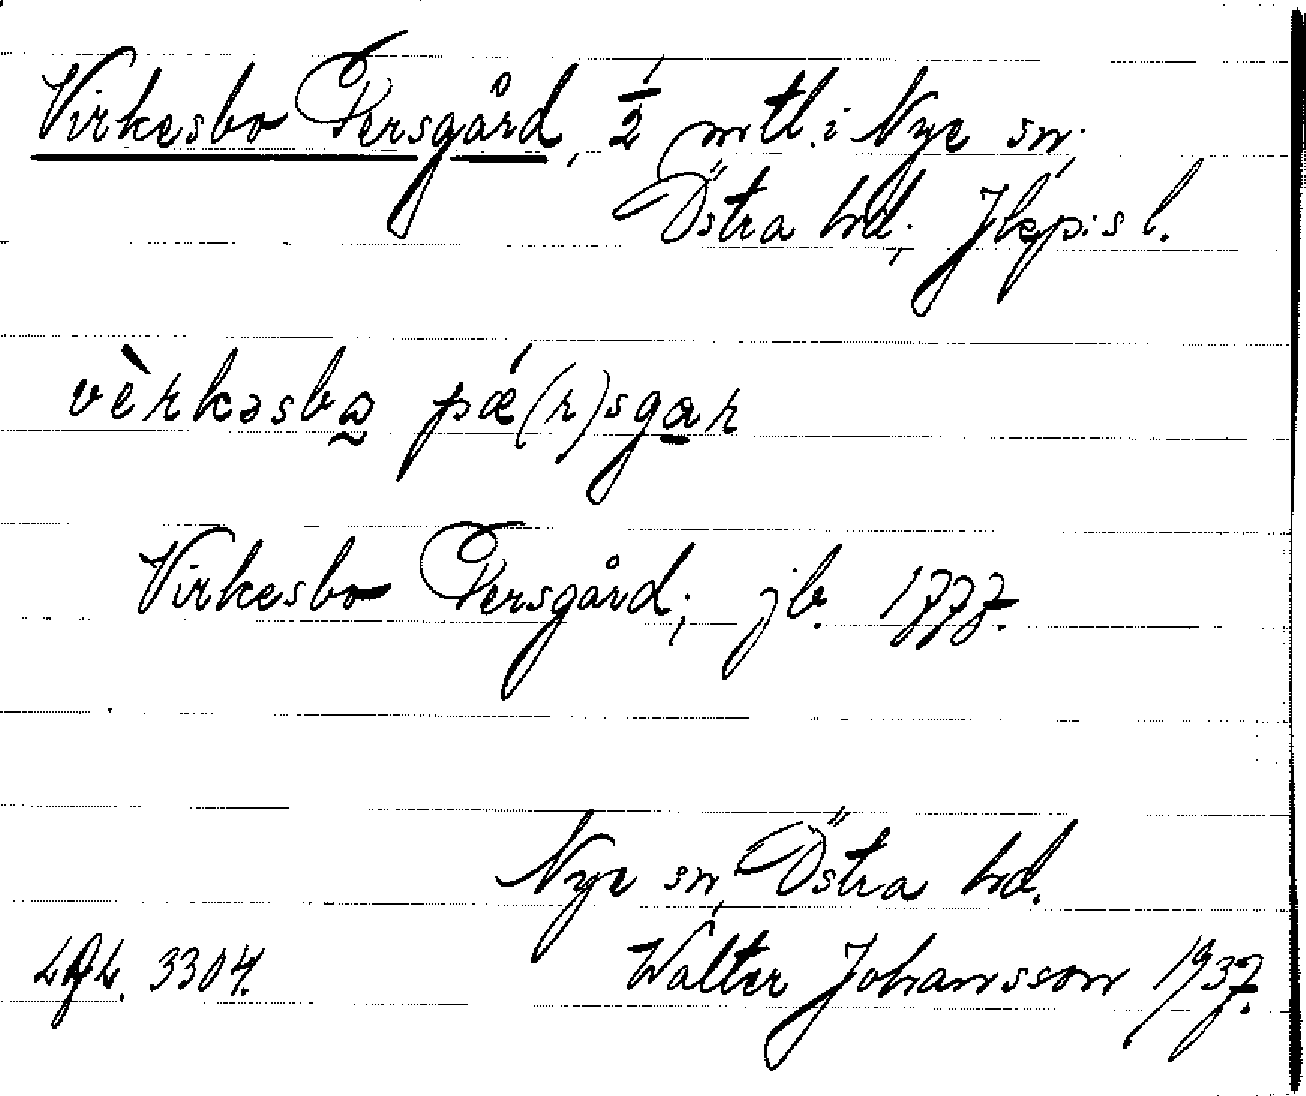 Virkesbo Persgård, ½ mtl. i Nye sn,
Östra hd; Jkpis l.
vèrkəsbo̰ pǽ(r)sga̲r
Virkesbo Persgård; jb. 1777.
Nye sn, Östra hd.
3304. Walter Johansson 1937.